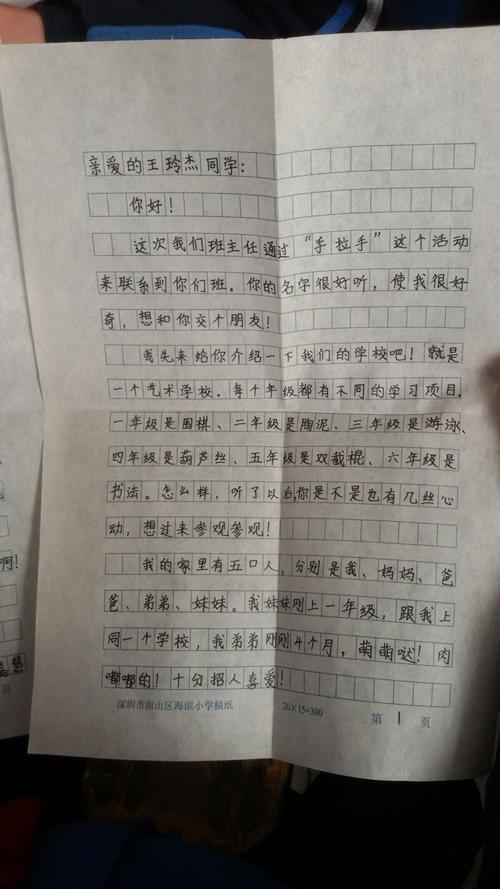 亲爱的王玲杰同学：
你好！
这次我们班主任通过“手拉手”这个活动
来联系到你们班。你的名字很好听，使我很好
奇，想和你交个朋友！
我先来给你介绍一下我们的学校吧！就是
一个艺术学校。每个年级都有不同的学习项目.
一年级是围棋、二年级是陶泥、三年级是游泳、
四年级是葫芦丝、五年级是双截棍、六年级是
书法。怎么样，听了以后,你是不是也有几丝心
动，想过来参观参观！
我的家里有五口人，分别是我、妈妈、爸
爸、弟弟、妹妹。我妹妹刚上一年级，跟我上
同一个学校，我弟弟刚刚4个月，萌萌哒！肉
嘟嘟的！十分招人喜爱！
深圳市南山区海滨小学稿纸 20×15=300 第 1 页
啊！
页